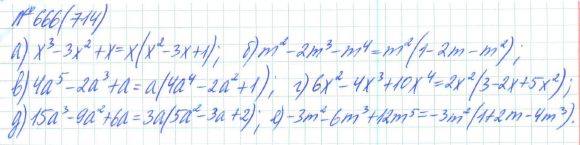 № 666(714)
а) x³-3x²+x=x(x²-3x+1); б) m²-2m³-m⁴=m²(1-2m-m²);
в) 4a⁵-2a³+a=a(4a⁴-2a²+1); г) 6x²-4x³+10x⁴=2x²(3-2x+5x²);
д) 15a³-9a²+6a=3a(5a²-3a+2); е) -3m²-6m³+12m⁵=-3m²(1+2m-4m³).